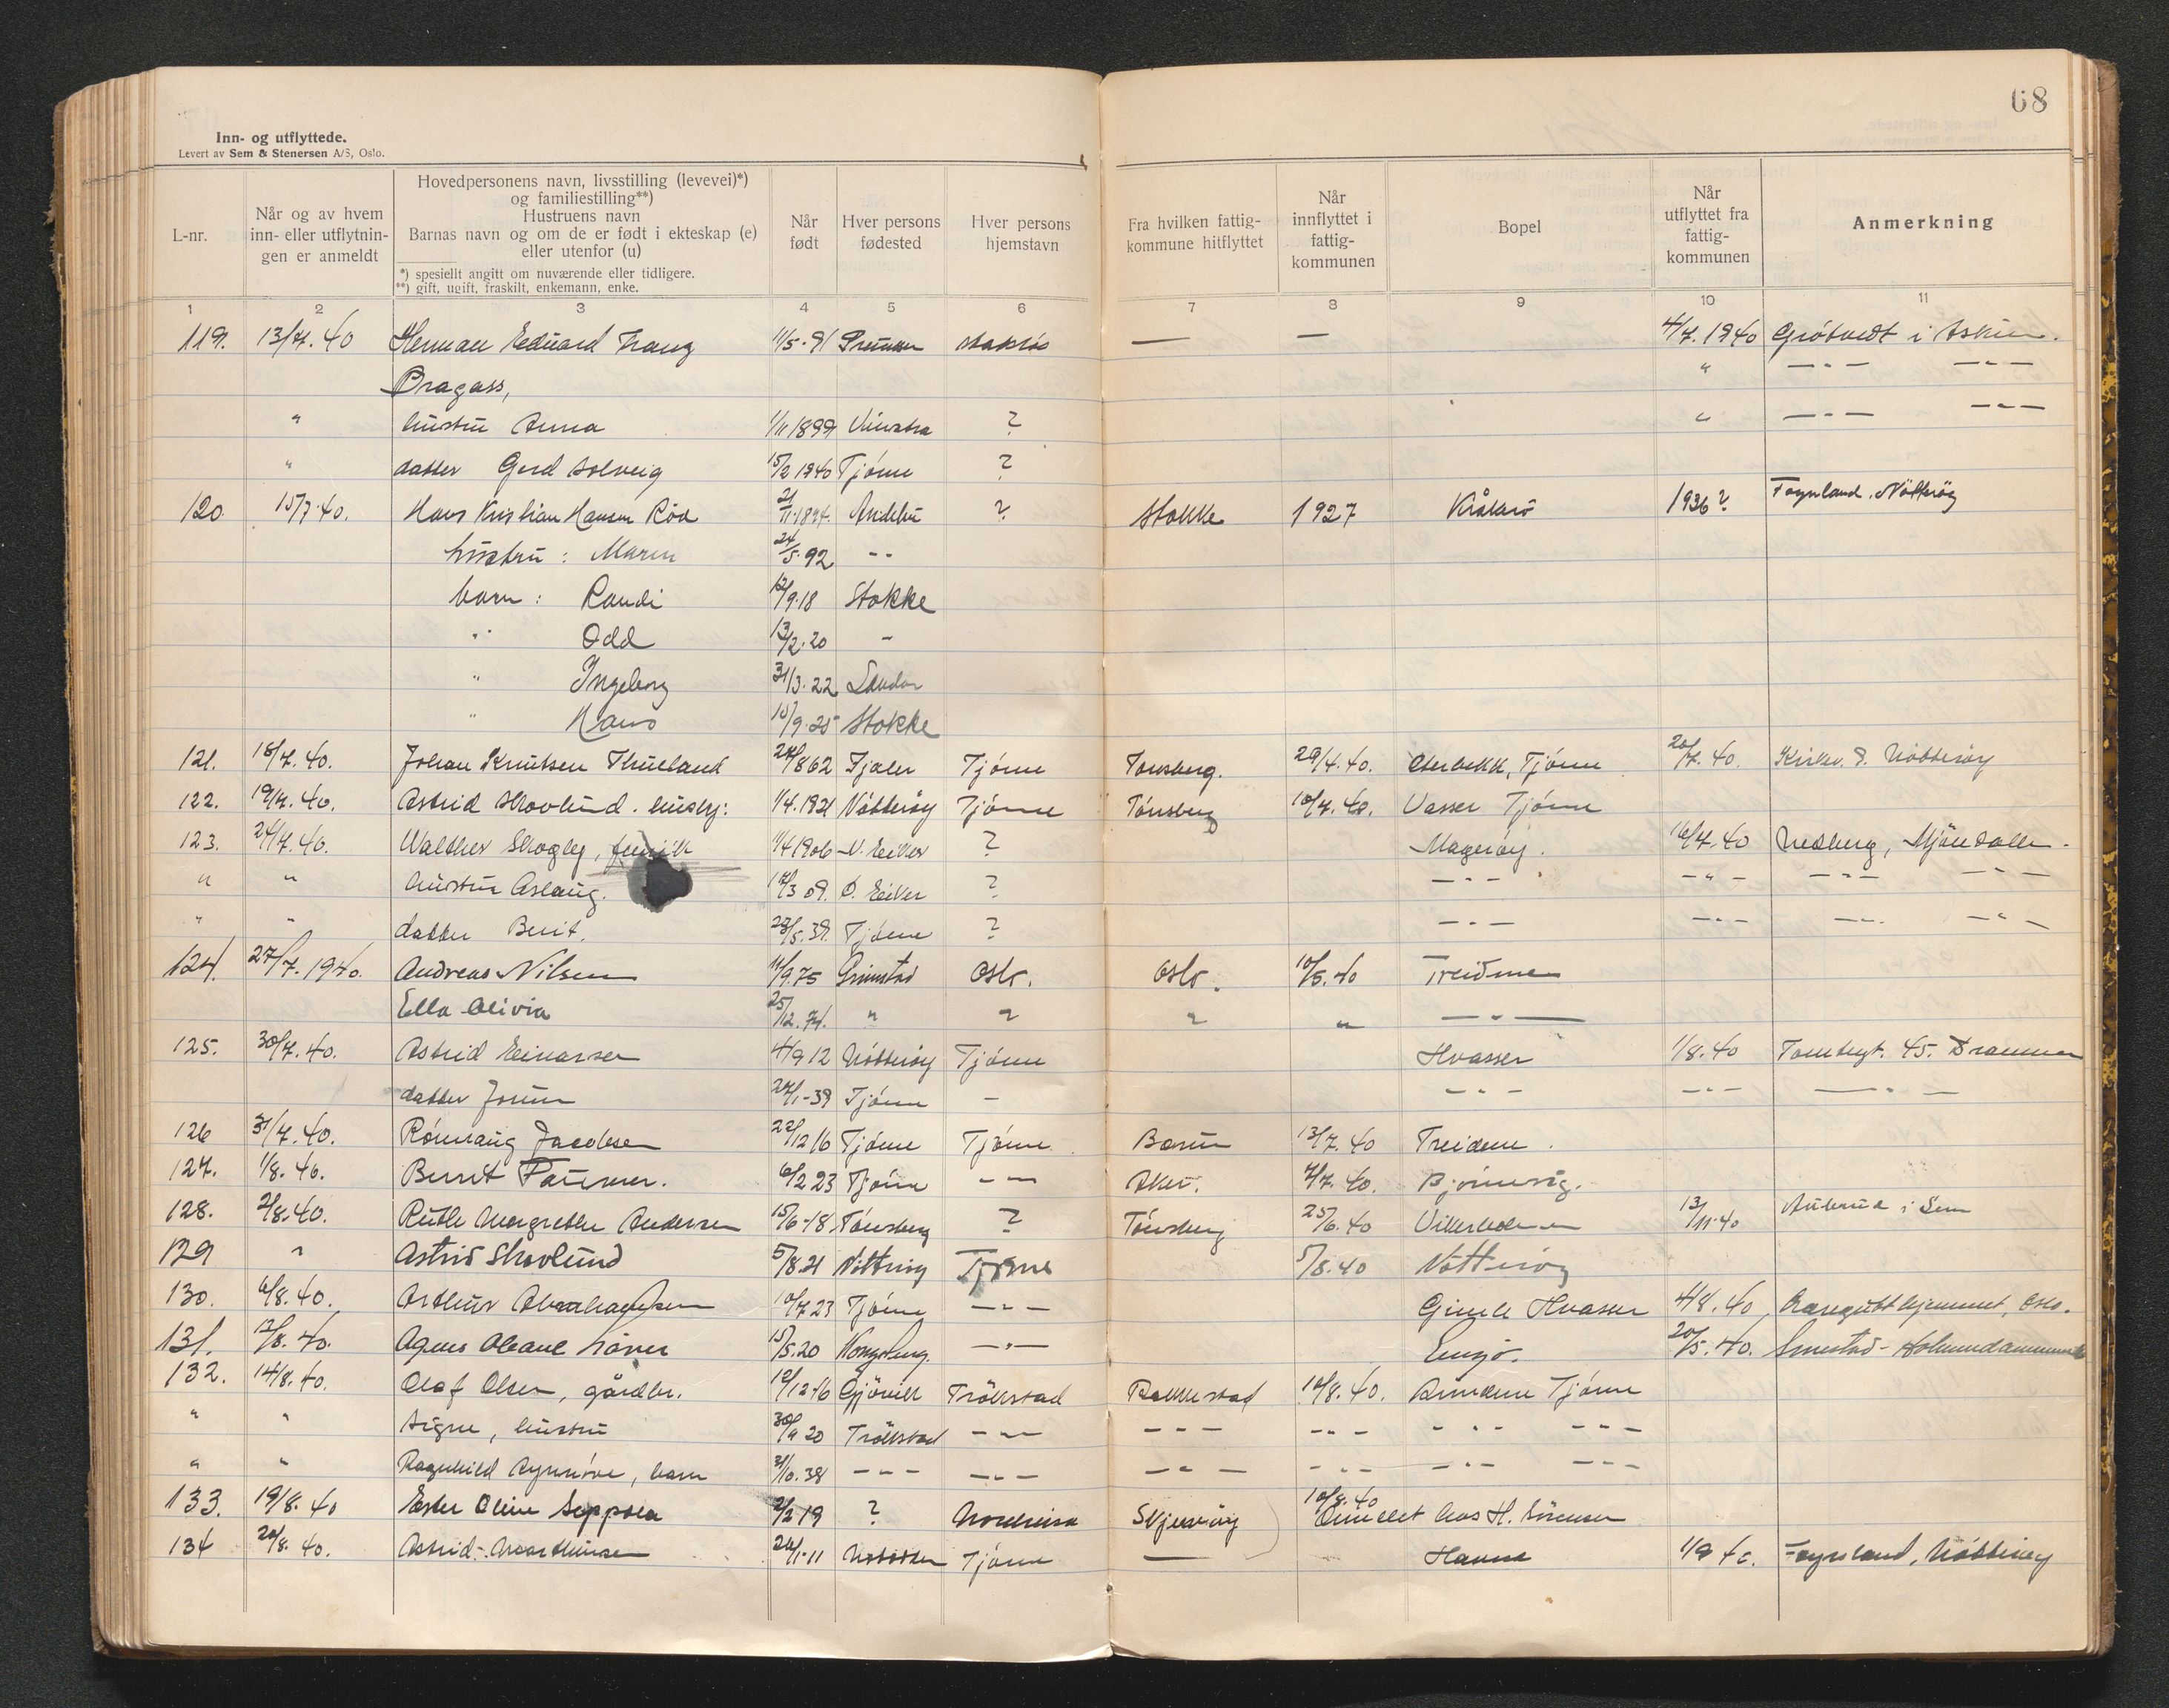 68
Inn- og utflyttede.
Levert av Sem & Stenersen A/S, Oslo.
L-nr.
Når og av hvem inn- eller utflytnin-gen er anmeldt
Hovedpersonens navn, livsstilling (levevei)*)
og familiestilling**)
Hustruens navn
Barnas navn og om de er født i ekteskap (e)
eller utenfor (u)
*) spesiellt angitt om nuværende eller tidligere.
**) gift, ugift, fraskilt, enkemann, enke.
Når født
Hver persons fødested
Hver persons hjemstavn
Fra hvilken fattig-kommune hitflyttet
Når innflyttet i fattig-kommunen
Bopel
Når utflyttet fra fattig-kommunen
Anmerkning
1 2 3 4 5 6 7 8 9 10 11
119. 13/7.40 Herman Eduard Franz 11/5-91 statsløs — — 4/7.1940 i Askim.
Pragass, " — " — — " —
" hustru Anna 1/11 1899 Vinstra ? " — " — — " —
" datter Gerd Solveig 15/2 1940 Tjøme ?
120. 15/7.40. Hans Kristian Hansen Röd 21/11.1894. Andebu ? Stokke 1927 Kråkerö 1936? Föynland. Nötteröy
hustru : Maren 24/5.92 --
barn : Randi 12/9.18 Stokke
" Odd 13/2.20 -
" Ingeborg 31/3.22 Sandar
" Hans 15/9.25 Stokke
121. 18/7.40. Johan Knutsen Thueland 27/8 62 Fjaler Tjøme Tønsberg. 29/4.40. Tjøme 20/7.40. Nøtterøy
122. 19/7.40. Astrid Skovlund. 1/4.1921 Nøtterøy Tjøme Tønsberg 10/7.40. Vasser Tjøme
123. 24/7.40. Walther Skogly, 1/4 1906 N. Eiker ? Magerøy. 16/7.40 Nedberg, Mjøndalen.
" " hustru Aslaug. 17/3 09. Ø. Eiker ? — " — — " — — " — — " —
" " datter Berit. 28/5.39. Tjøme ? — " — — " — — " — — " —
124. 27/7.1940. Andreas Nilsen 11/9.75 Grimstad Oslo. Oslo. 10/5.40 Treidene
Ella Olivia 25/12.74. " " " " — " —
125. 30/7.40. Astrid Einarsen 4/9 12 Nøtterøy Tjøme Hvasser 1/8.40 Tomtegt. 45. Drammen
datter Jorun 27/1-39 Tjøme - - " - - " - — " —
126 31/7.40. Rønnaug Jacobsen 22/12 16 Tjøme Tjøme Bærum 13/7.40 Treidene.
127. 1/8.40. Berit 6/2 23 Tjøme - " - Aker. 4/7.40. Bjørnevåg.
128. 2/8.40. Ruth Margrethe Andersen 15/6-18 Tønsberg ? Tønsberg 25/6.40 13/11.40 Aulerud i Sem
129 " Astrid Skovlund 5/8.21 Nötteröy Tjöme 5/8.40 Nötteröy
130. 6/8.40. Arthur Abrahamsen 10/7 23 Tjøme — " — Gimle Hvasser 4/8.40 Oslo.
131. 12/8.40. Agnes 15/5.20 Kongsberg. — " — Engø. 20/5.40. Smestad -
132. 14/8.40. Olaf Olsen, gårdbr. 12/12-16 Gjövik Trökstad Rakkestad 12/8.40. Tjøme
" " Signe, hustru 30/9 20 Trökstad - " - - " - - " - - " - - " -
" " Ragnhild Synnøve, barn 2/10.38 - " - - " - - " - - " - - " - - " -
133. 19/8.40 Ester Oline Seppola 2/2 19 ? Nordreisa Skjervøy 10/8.40 hos H. Sørensen
134 20/8.40. Astrid 26/1-11 Tjøme — 1/9 40. Föynland, Nøtterøy